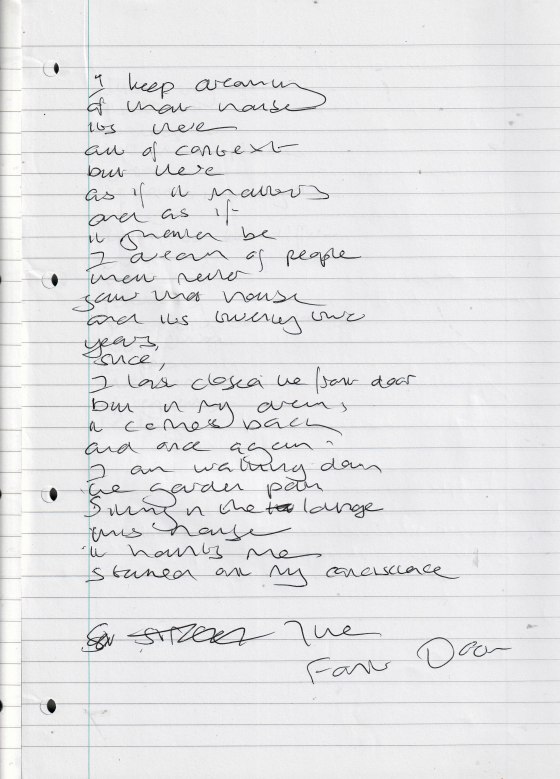 I keep dreaming
of that house
its there
out of context
but there
as if it matters
and as if
it should be
I dream of people
that never
saw that house
and its twenty five
years,
since,
I last closed the front door
but in my dreams
it comes back
and once again
I am walking down
the garden path
Sitting in the lounge
this house
it haunts me
stained on my conscience
The
Front Door